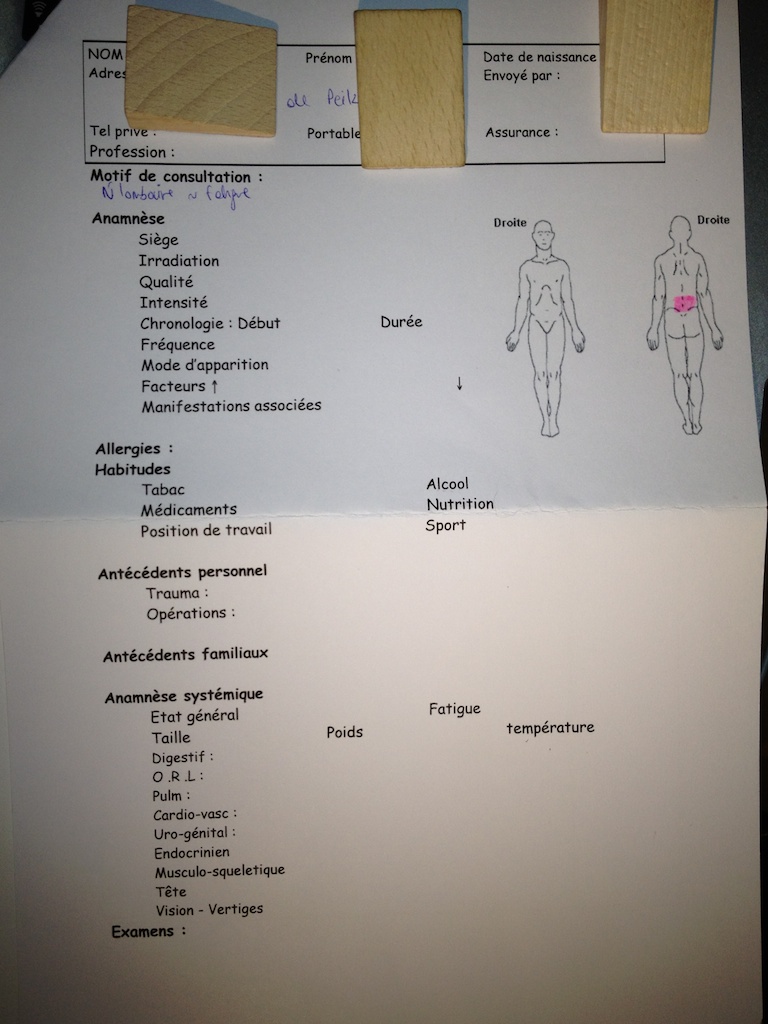 NOM Prénom Date de naissance
Adres Envoyé par :
de
Tel privé : Portable Assurance :
Profession :
Motif de consultation :
lombaire fatigue
Anamnèse
Droite Droite
Siège
Irradiation
Qualité
Intensité
Chronologie : Début Durée
Fréquence
Mode d'apparition
Facteurs ↑ ↓
Manifestations associées
Allergies :
Habitudes
Tabac Alcool
Médicaments Nutrition
Position de travail Sport
Antécédents personnel
Trauma :
Opérations :
Antécédents familiaux
Anamnèse systémique
Etat général Fatigue
Taille Poids température
Digestif :
O .R .L :
Pulm :
Cardio-vasc :
Uro-génital :
Endocrinien
Musculo-squeletique
Tête
Vision - Vertiges
Examens :